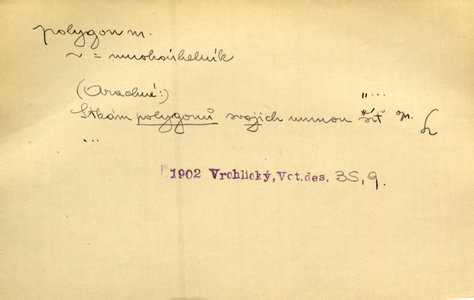 polygon m.
~ = mnohoúhelník
(Arachné:) "...
Stkám polygonů svojich umnou síť op.
...
1902 Vrchlický, Vct.des. 35, 9.